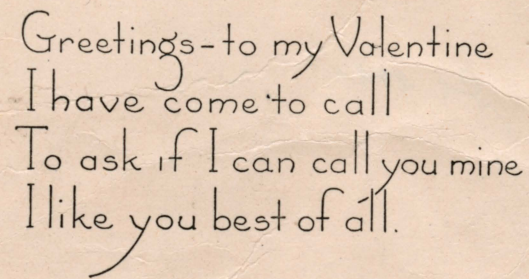 Greetings-to my Valentine
I have come to call
To ask if I can call you mine
I like you best of all.